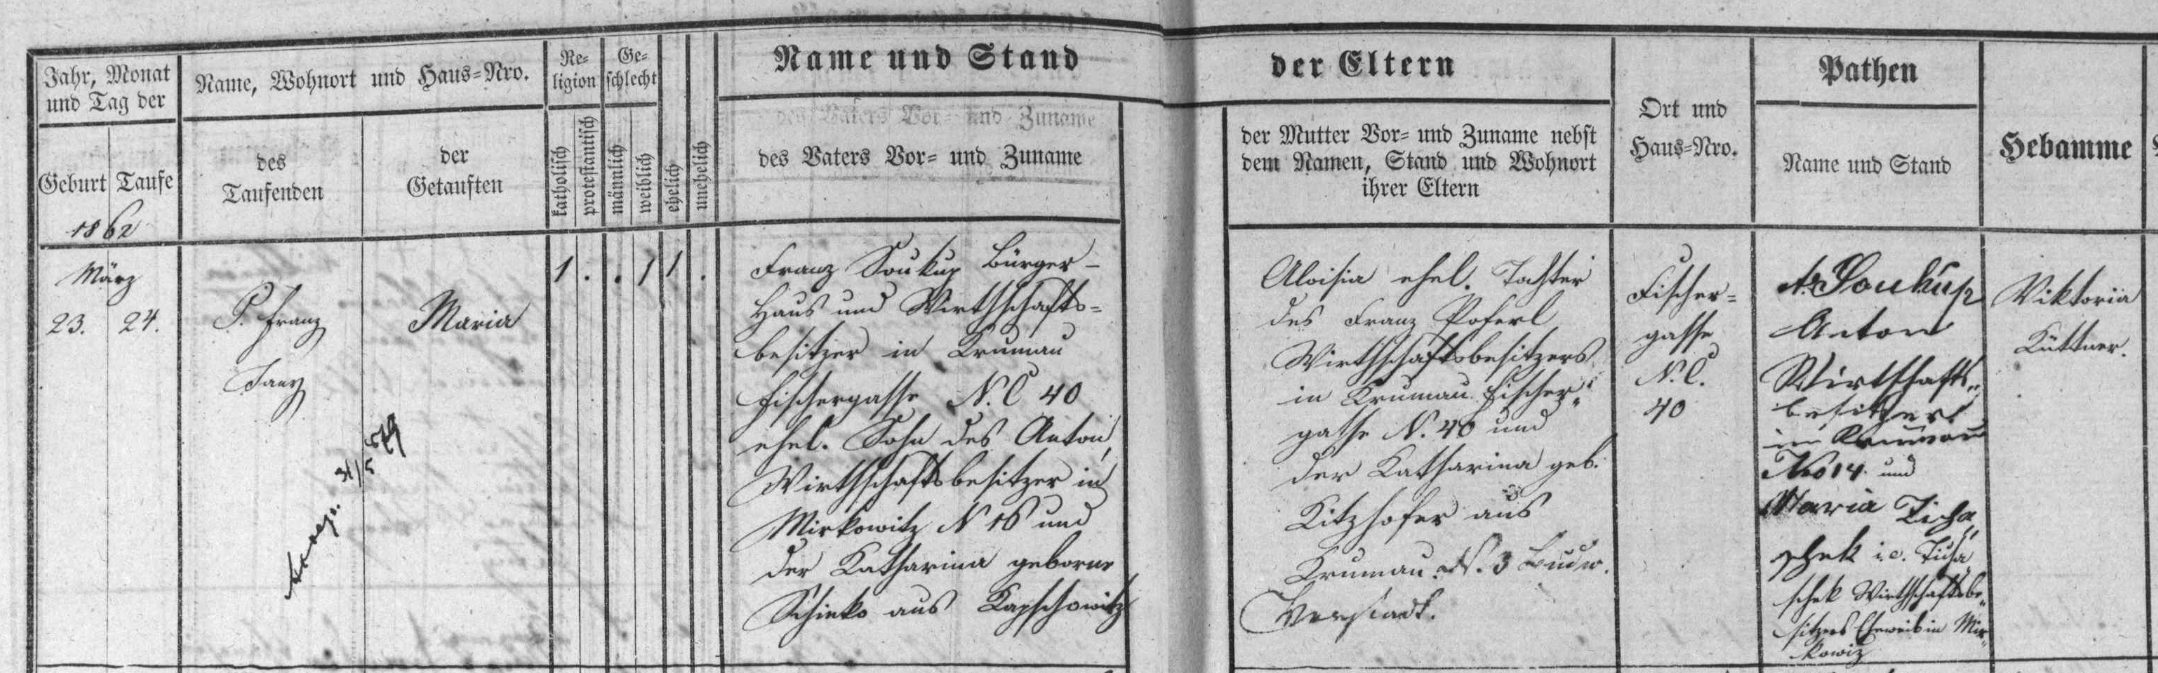 Jahr, Monat
und Tag der
Geburt
Taufe
Name, Wohnort und Haus=Nro.
des
Taufenden
der
Getauften
Re-
ligion
katholisch
protestantisch
Ge-
schlecht
männlich
weiblich
ehelich
unehelich
Name und Stand
des Vaters Vor= und Zuname
des Vaters Vor= und Zuname
der Eltern
der Mutter Vor= und Zuname nebst
dem Namen, Stand und Wohnort
ihrer Eltern
Ort und
Haus=Nro.
Pathen
Name und Stand
Hebamme
1862
März
23. 24.
P. Franz
Maria
1 . . 1 1 .
Franz Soukup Bürger-
Haus und Wirthschafts=
besitzer in Krumau
Fischergasse N.C 40
ehel. Sohn des Anton,
Wirthschaftsbesitzer in
Mirkowitz N 16 und
der Katharina geborne
Schinko aus Kapschowitz
Aloisia ehel. Tochter
des Franz Poferl
Wirthschaftsbesitzers
in Krumau Fischer=
gasse N. 40 und
der Katharina geb.
Kitzhofer aus
Krumau N. 3 Budw.
Vorstadt.
Fischer=
gasse
N.C.
40
Soukup
Anton
Wirtschafts=
besitzers
in Krumau
No 14. und
Maria Ticha,
schek i.e. Ticha
schek Wirthschaftsbe=
sitzers Eheweib in Mir=
kowiz
Viktoria
Küttner.
31/5